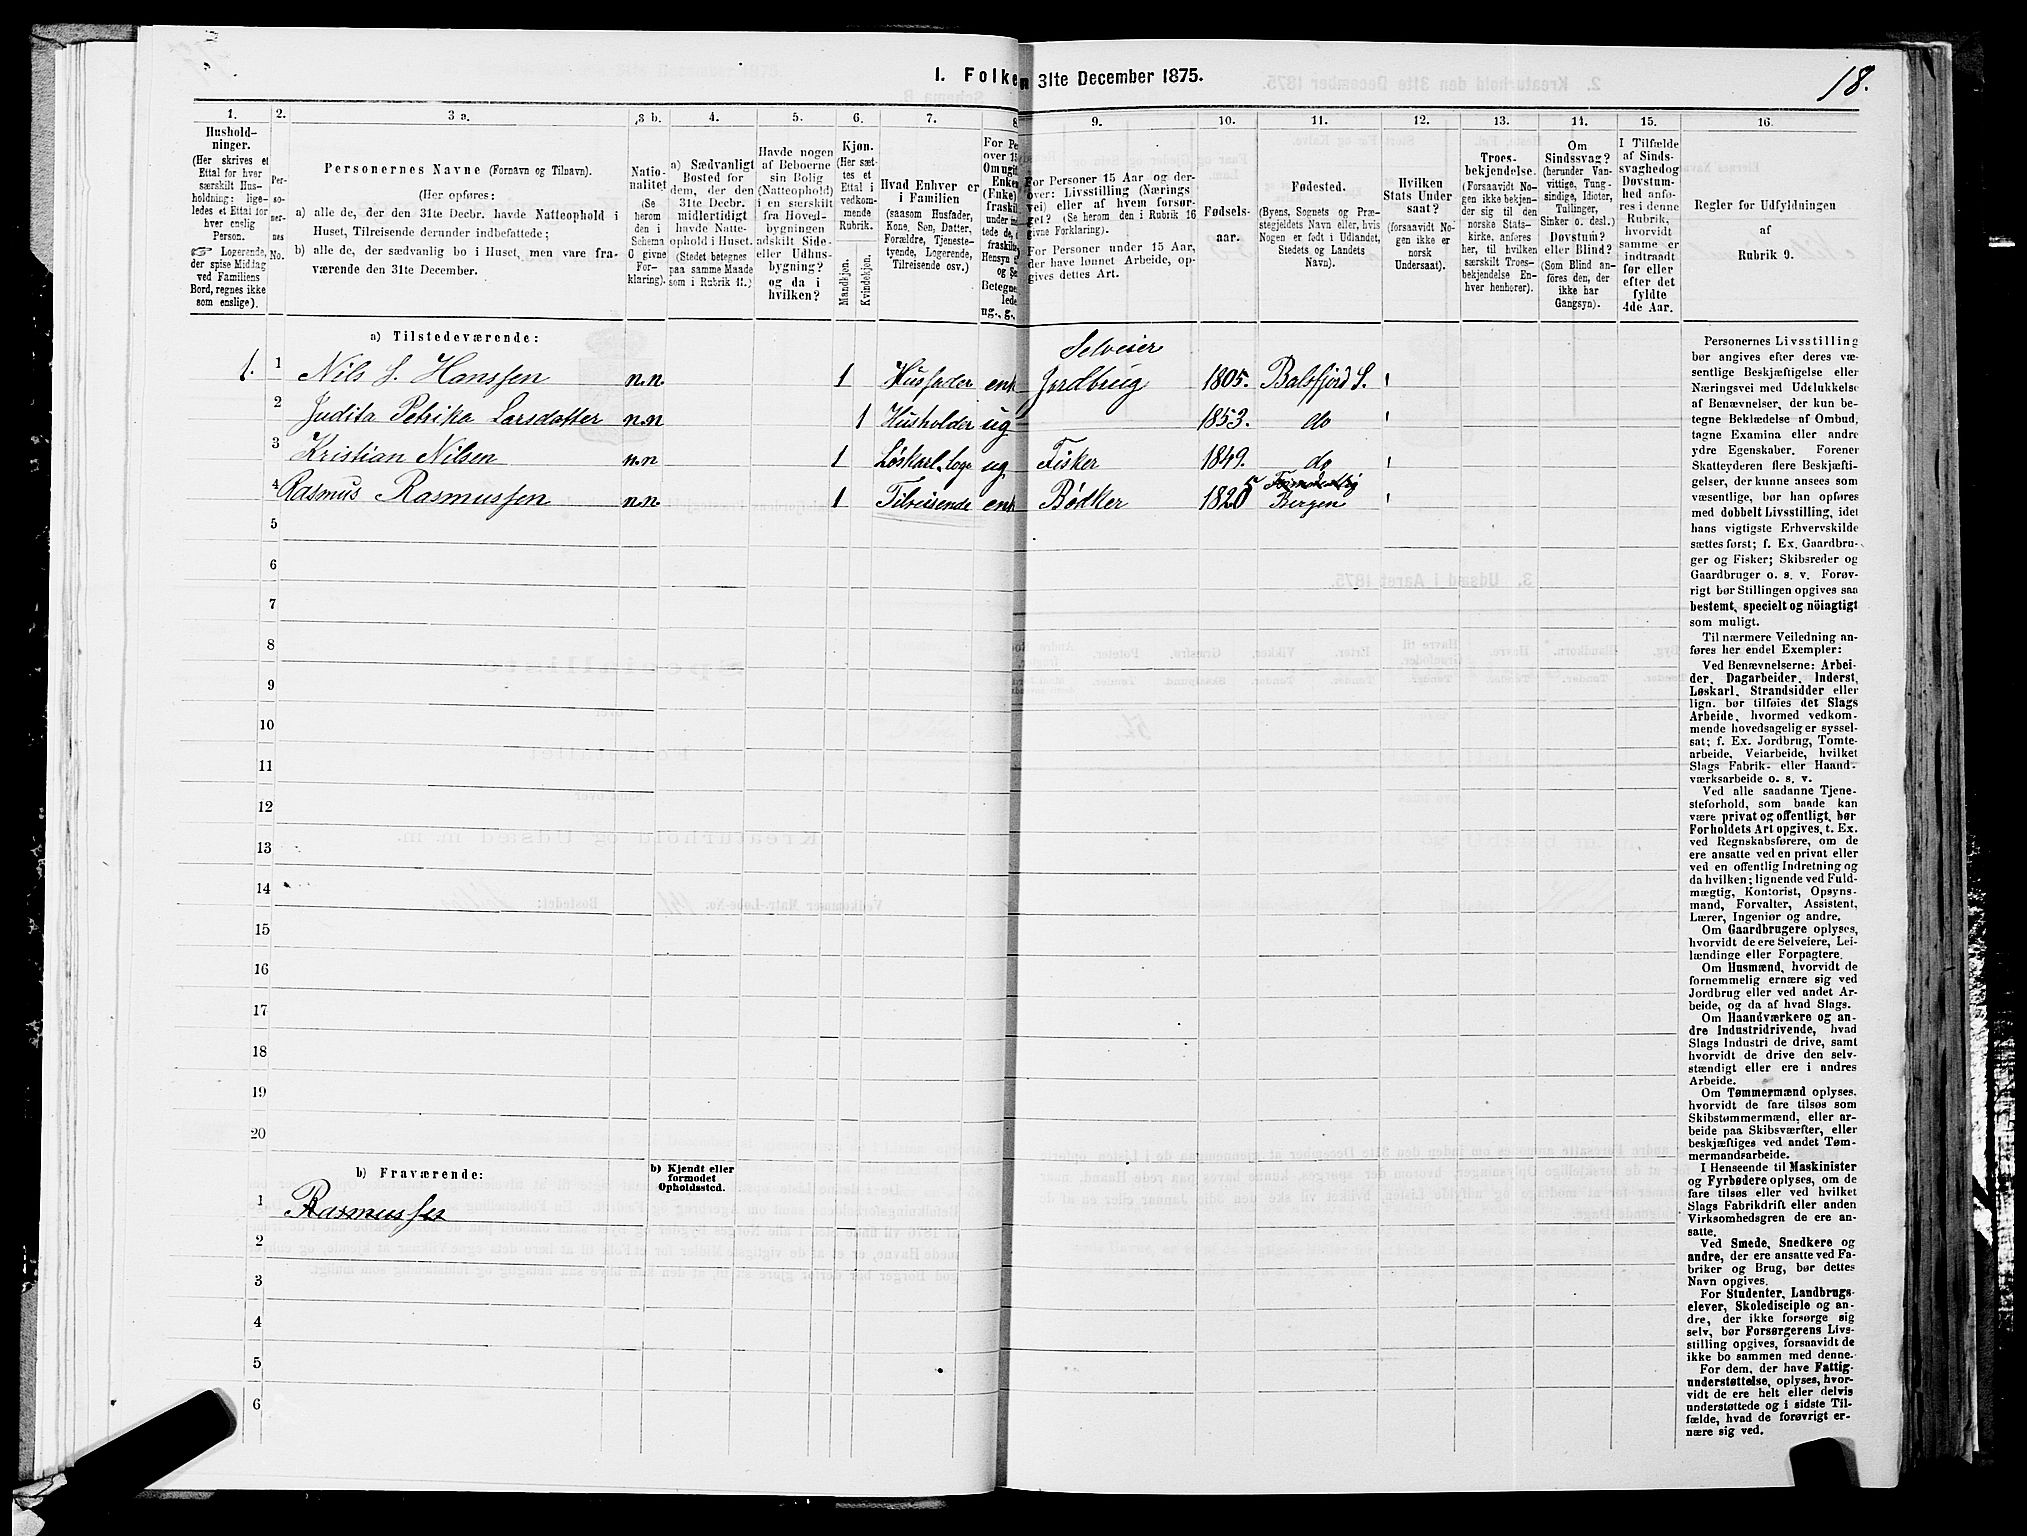 18.
1. Folken 31te December 1875.
1. 2. 3 a. 3 b. 4. 5. 6. 7. 8 9. 10. 11. 12. 13. 14. 15. 16.
Hushold-
ninger.
(Her skrives et
Ettal for hver
særskilt Hus-
holdning: lige-
ledes et Ettal for
hver enslig
Person.
☞ Logerende,
der spise Middag
ved Familiens
Bord, regnes ikke
som enslige).
Per-
so-
ner-
nes
No.
Personernes Navne (Fornavn og Tilnavn).
(Her opføres:
a) alle de, der den 31te Decbr. havde Natteophold i
Huset, Tilreisende derunder indbefattede;
b) alle de, der sædvanlig bo i Huset, men vare fra-
værende den 31te December.
Natio-
nalitet
(Se
herom
den i
Schema
6 givne
For-
klaring).
a) Sædvanligt
Bosted for
dem, der den
31te Decbr.
midlertidigt
havde Natte-
ophold i Huset.
(Stedet betegnes
paa samme Maade
som i Rubrik 11.)
Havde nogen
af Beboerne
sin Bolig
(Natteophold)
i en særskilt
fra Hoved-
bygningen
adskilt Side-
eller Udhus-
bygning?
og da i
hvilken?
Kjøn.
(Her sæt-
tes et
Ettal i
vedkom-
mende
Rubrik.
Mandkjøn.
Kvindekjøn.
Hvad Enhver er
i Familien
(saasom Husfader,
Kone, Søn, Datter,
Forældre, Tjeneste-
tyende, Logerende,
Tilreisende osv.)
For Pe
over 15
Om ugift
Enker
(Enke)
fraskil
under in
tede de,
fraskilte
Hensyn
og Se
Betegne
lede
ug., g.,
For Personer 15 Aar og der-
over: Livsstilling (Nærings
vei) eller af hvem forsør-
get? (Se herom den i Rubrik 16
givne Forklaring).
For Personer under 15 Aar,
der have lønnet Arbeide, op-
gives dettes Art.
Fødsels-
aar.
Fødested.
(Byens, Sognets og Præ-
stegjeldets Navn eller, hvis
Nogen er født i Udlandet,
Stedets og Landets
Navn).
Hvilken
Stats Under
saat?
(forsaavidt No-
gen ikke er
norsk
Undersaat).
Troes-
bekjendelse.
(Forsaavidt No-
gen ikke bekjen-
der sig til den
norske Stats-
kirke, anføres
her, til hvilken
særskilt Troes-
bekjendelse En-
hver henhører).
Om
Sindssvag?
(herunder Van-
vittige, Tung-
sindige, Idioter,
Tullinger,
Sinker o. desl.)
Døvstum?
eller Blind?
(Som Blind an-
føres den, der
ikke har
Gangsyn).
I Tilfælde
af Sinds-
svaghed og
Døvstum-
hed anfø-
res i denne
Rubrik,
hvorvidt
samme er
indtraadt
før eller
efter det
fyldte
4de Aar.
Regler for Udfyldningen
af
Rubrik 9.
a) Tilstedeværende:
1. 1 Nils S. Hanssen n.n. 1 Husfader enk Selveier Jordbrug 1805. Balsfjord S.
2 Judita Petrika Larsdatter n.n 1 Husholder ug 1853. do
3 Kristian Nilsen n.n 1 Løskarl, loge ug Fisker 1849. do
4 Rasmus Rasmussen n.n 1 Tilreisende enk Bødker 1820 5 Bergen
5
6
7
8
9
10
11
12
13
14
15
16
17
18
19
20
b) Fraværende:
b) Kjendt eller
formodet
Opholdssted.
1 Rasmussen
2
3
4
5
6
Personernes Livsstilling
bør angives efter deres væ-
sentlige Beskjæftigelse eller
Næringsvei med Udelukkelse
af Benævnelser, der kun be-
tegne Beklædelse af Ombud,
tagne Examina eller andre
ydre Egenskaber. Forener
Skatteyderen flere Beskjæfti-
gelser, der kunne ansees som
væsentlige, bør han opføres
med dobbelt Livsstilling, idet
hans vigtigste Erhvervskilde
sættes først; f. Ex. Gaardbru-
ger og Fisker; Skibsreder og
Gaardbruger o. s. v. Forøv-
rigt bør Stillingen opgives saa
bestemt, specielt og nöiagtigt
som muligt.
Til nærmere Veiledning an-
føres her endel Exempler:
Ved Benævnelserne: Arbei-
der, Dagarbeider, Inderst,
Løskarl, Strandsidder eller
lign. bør tilføies det Slags
Arbeide, hvormed vedkom-
mende hovedsagelig er syssel-
sat; f. Ex. Jordbrug, Tomte-
arbeide, Veiarbeide, hvilket
Slags Fabrik- eller Haand-
værksarbeide o. s. v.
Ved alle saadanne Tjene-
steforhold, som baade kan
være privat og offentligt, bør
Forholdets Art opgives, t. Ex.
ved Regnskabsførere, om de
ere ansatte ved en privat eller
ved en offentlig Indretning og
da hvilken; lignende ved Fuld-
mægtig, Kontorist, Opsyns-
mand, Forvalter, Assistent,
Lærer, Ingeniør og andre.
Om Gaardbrugere oplyses,
hvorvidt de ere Selveiere, Lei-
lændinge eller Forpagtere.
Om Husmænd, hvorvidt de
fornemmelig ernære sig ved
Jordbrug eller ved andet Ar-
beide, og da af hvad Slags.
Om Haandværkere og an-
dre Industridrivende, hvad
Slags Industri de drive, samt
hvorvidt de drive den selv-
stændigt eller ere i andres
Arbeide.
Om Tømmermænd oplyses,
hvorvidt de fare tilsøs som
Skibstømmermænd, eller ar-
beide paa Skibsværfter, eller
beskjæftiges ved andet Tøm-
mermandsarbeide.
I Henseende til Maskinister
og Fyrbødere oplyses, om de
fare tilsøs eller ved hvilket
Slags Fabrikdrift eller anden
Virksomhedsgren de ere an-
satte.
Ved Smede, Snedkere og
andre, der ere ansatte ved Fa-
briker og Brug, bør dettes
Navn opgives.
For Studenter, Landbrugs-
elever, Skoledisciple og an-
dre, der ikke forsørge sig
selv, bør Forsørgerens Livs-
stilling opgives, forsaavidt de
ikke bo sammen med denne.
For dem, der have Fattig-
understøttelse, oplyses, hvor-
vidt de ere helt eller delvis
understøttede og i sidste Til-
fælde, hvad de forøvrigt er-
nære sig ved.